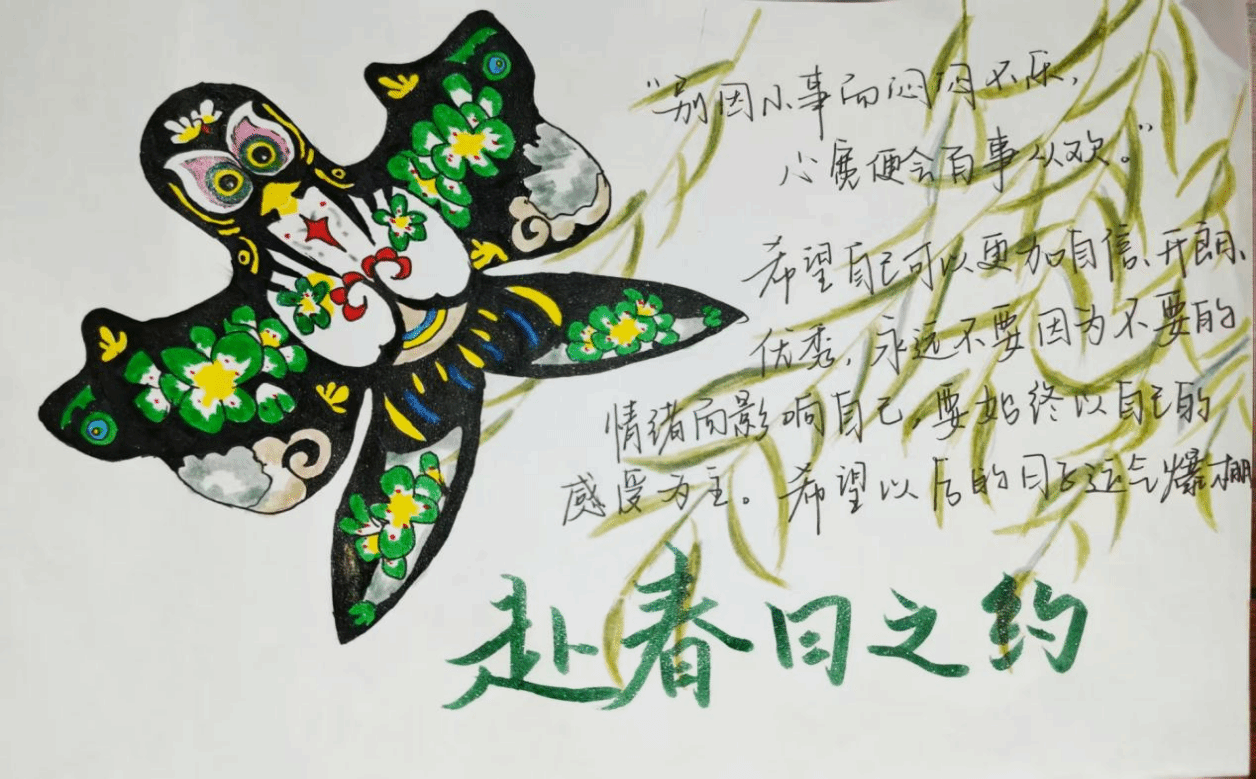 “别因小事而闷闷不乐,
心宽便会百事从欢。”
希望自己可以更加自信、开朗、
优秀,永远不要因为不要的
情绪而影响自己,要始终以自己的
感受为主。希望以后的日子运气爆棚
赴春日之约